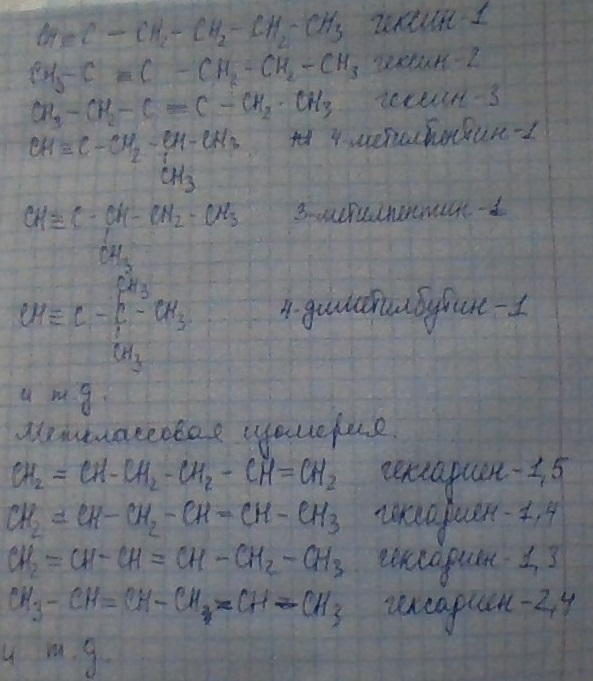 CH≡C – CH2 – CH2 – CH2 – CH3 гексин-1
CH3 – C ≡ C – CH2 – CH2 – CH3 гексин-2
CH3 – CH2 – C ≡ C – CH2 – CH3 гексин-3
CH≡C – CH2 – CH – CH3 4-метилпентин-1
CH3
CH≡C – CH – CH2 – CH3 3-метилпентин-1
CH3
CH3
CH≡C – C – CH3 4-диметилбутин-1
CH3
и т.д.
Межклассовая изомерия.
CH2 = CH – CH2 – CH2 – CH = CH2 гексадиен-1,5
CH2 = CH – CH2 – CH = CH – CH3 гексадиен-1,4
CH2 = CH – CH = CH – CH2 – CH3 гексадиен-1,3
CH3 – CH = CH – CH = CH – CH3 гексадиен-2,4
и т.д.